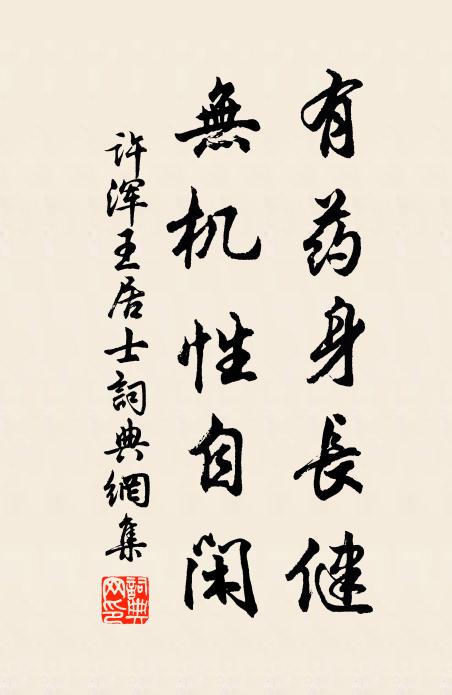 有药身長健
無机性自闲
许浑王居士詞典網集
詞典网印